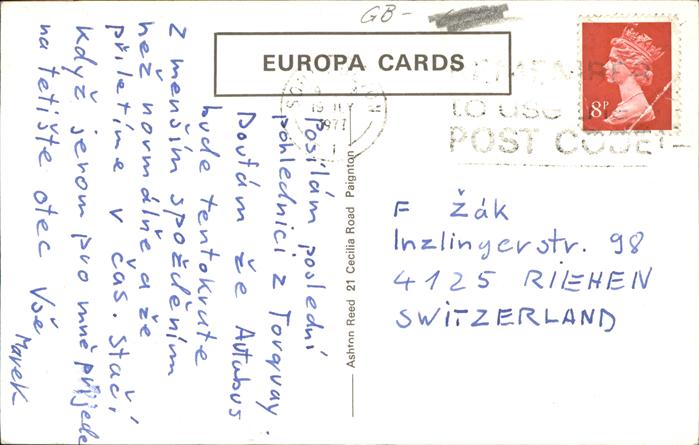 GB-
EUROPA CARDS
8P
1977
TO USE
POST CODE
Posílám poslední
pohlednici z Torquay.
Doufám že Autobus
bude tentokrute
z menším spožděním
než normálně a že
přiletíme v čas. Stačí
když jenom pro mně přijede
na letiště otec Vše
Marek
Ashton Reed 21 Cecilia Road Paignton
F Žák
Inzlingerstr. 98
4125 RIEHEN
SWITZERLAND